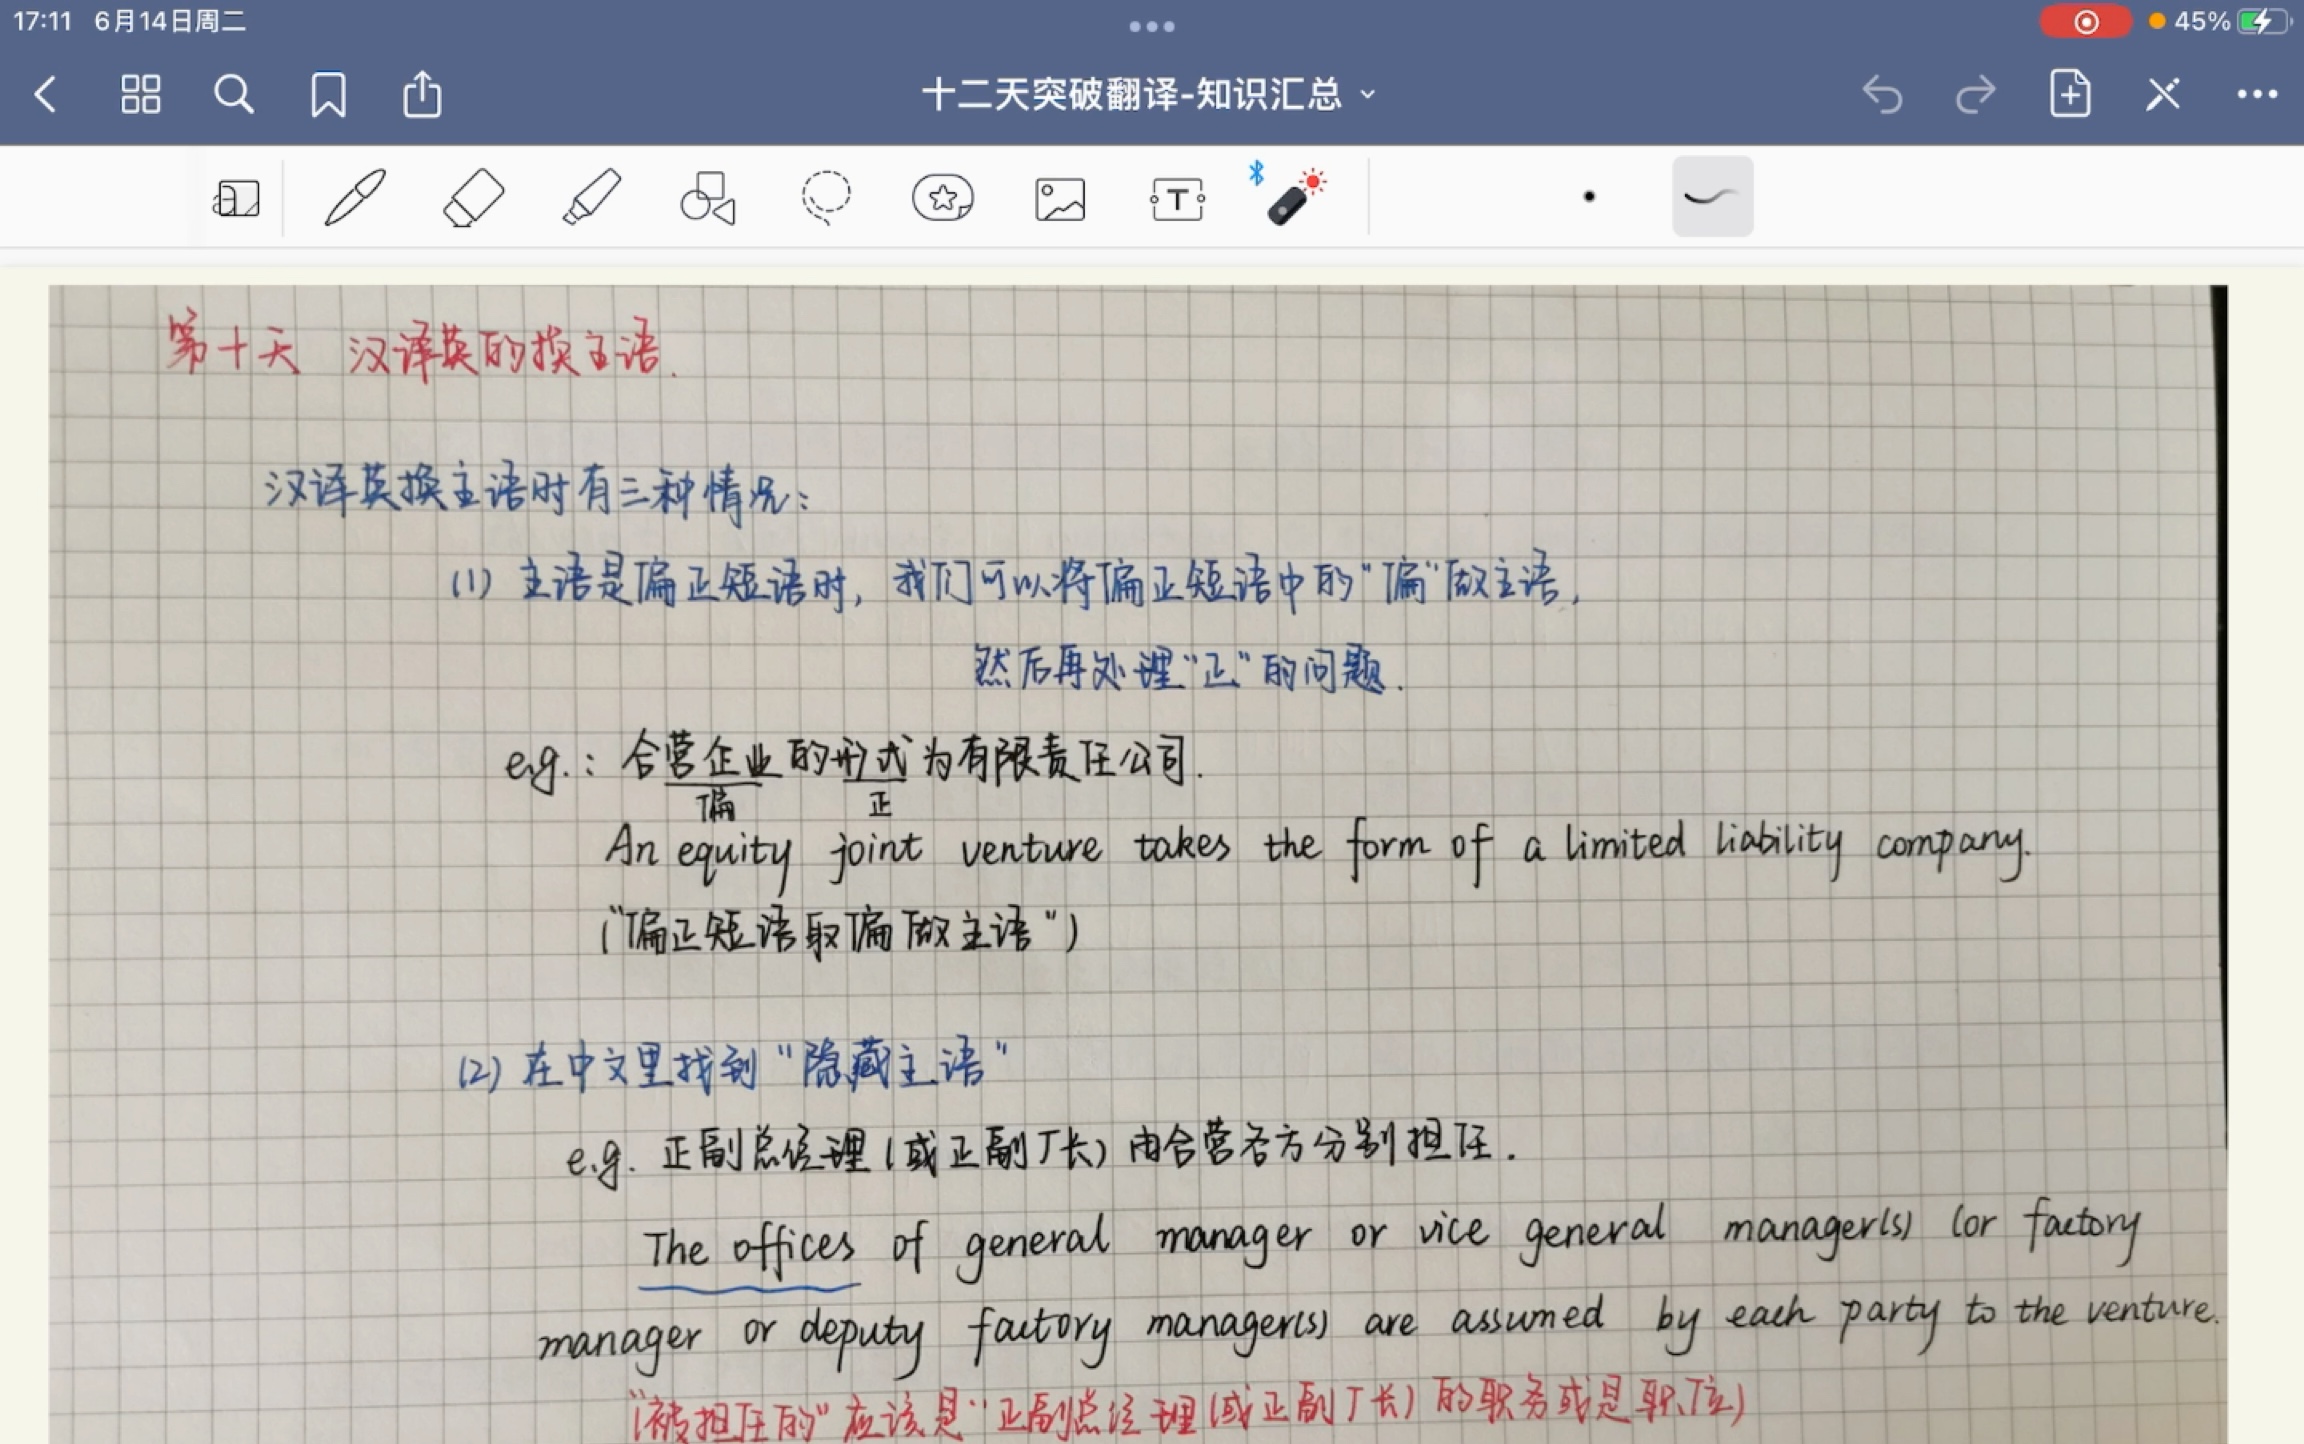 17:11 6月14日周二
45%
十二天突破翻译-知识汇总
第十天 汉译英的换主语.
汉译英换主语时有三种情况:
(1) 主语是偏正短语时, 我们可以将偏正短语中的"偏"做主语,
然后再处理"正"的问题.
e.g.: 合营企业的形式为有限责任公司.
偏 正
An equity joint venture takes the form of a limited liability company.
("偏正短语取偏做主语")
(2) 在中文里找到"隐藏主语"
e.g. 正副总经理(或正副厂长)由合营各方分别担任.
The offices of general manager or vice general manager(s) (or factory
manager or deputy factory manager(s) are assumed by each party to the venture.
("被担任的"应该是"正副总经理(或正副厂长)的职务或是职位)